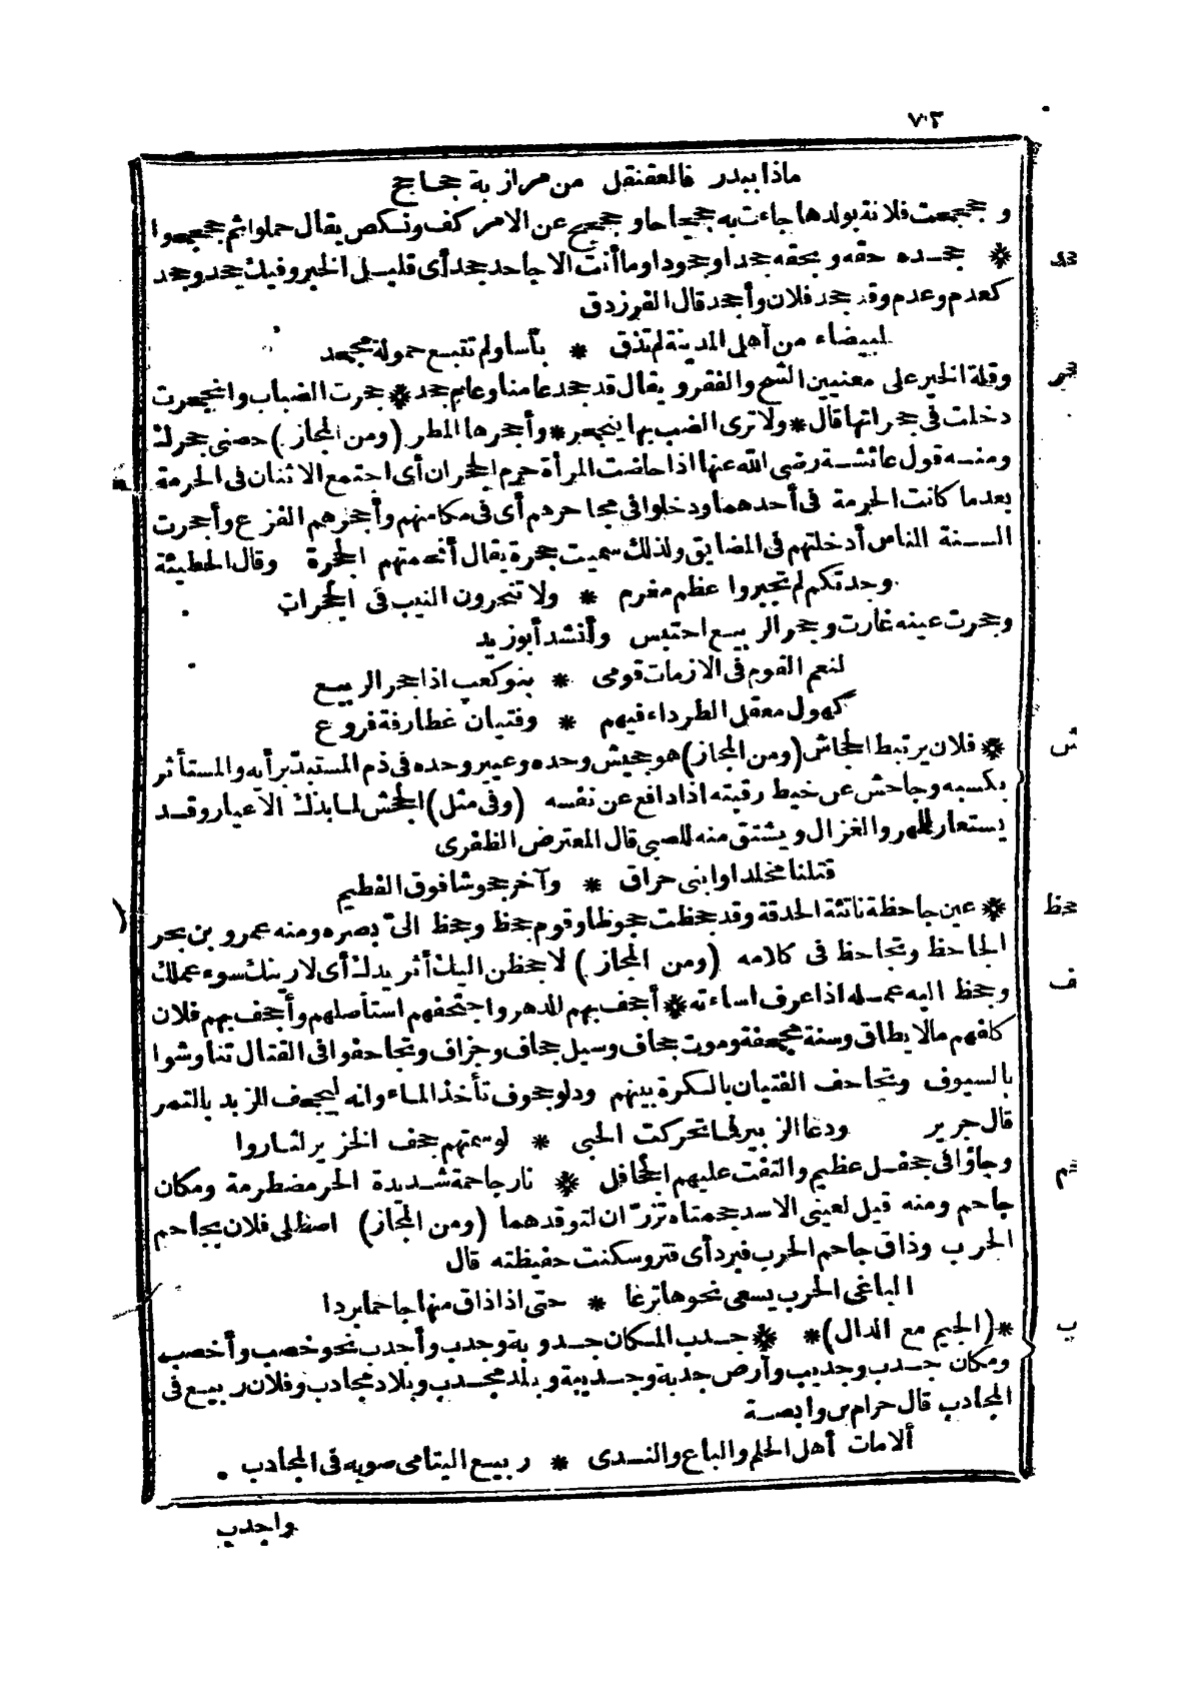 ٧٣
ماذا ببدر فالعقنقل من مرازبة جحاجح
و جحجحت فلانة بولدها جاءت به جحجاحا و جحجح عن الامر كف ونكص يقال حملوا ثم جحجحوا
جحد
* جحده حقه و بحقه جحدا وجحودا وما أنت الا جاحد جحد أى قليل الخير وفيك جحد وجحد
كعدم وعدم وقد جحد فلان وأجحد قال الفرزدق
لبيضاء من أهل المدينة لم تذق * بأسا ولم تتبع حمولة مجحد
جحر
وقلة الخير على معنيين الشح والفقر و يقال قد جحد عامنا وعام جحد * جحرت الضباب وانجحرت
دخلت فى جحراتها قال * ولا ترى الضب بها ينجحر * وأجحرها المطر (ومن المجاز) حصنى جحرك
ومنه قول عائشة رضى الله عنها اذا حاضت المرأة حرم الجحران أى اجتمع الاثنان فى الحرمة
بعدما كانت الحرمة فى أحدهما ودخلوا فى مجاحرهم أى فى مكامنهم وأجحرهم الفزع وأجحرت
السنة الناس أدخلتهم فى المضايق ولذلك سميت جحرة يقال أقحمتهم الجحرة وقال الحطيئة
وجدتكم لم تجبروا عظم مغرم * ولا تنحرون النيب فى الجحرات
وجحرت عينه غارت وجحر الربيع احتبس وأنشد أبو زيد
لنعم القوم فى الازمات قومى * بنو كعب اذا جحر الربيع
كهول معقل الطرداء فيهم * وفتيان غطارفة فروع
جحش
* فلان يرتبط الجحاش (ومن المجاز) هو جحيش وحده وعيير وحده فى ذم المستبد برأيه والمستأثر
بكسبه وجاحش عن خيط رقبته اذا دافع عن نفسه (وفى مثل) الجحش لما بذك الاعيار وقد
يستعار للمهر والغزال و يشتق منه للصبى قال المعترض الظفرى
قتلنا مخلدا وابنى حراق * وآخر جحوشا فوق الفطيم
جحظ
* عين جاحظة ناتئة الحدقة وقد جحظت جحوظا وقوم جحظ وجحظ الىّ بصره ومنه عمرو بن بحر
الجاحظ وتجاحظ فى كلامه (ومن المجاز) لاجحظن اليك أثر يدك أى لارينك سوء عملك
جحف
وجحظ اليه عمله اذا عرف اساءته * أجحف بهم الدهر واجتحفهم استأصلهم وأجحف بهم فلان
كلفهم مالا يطاق وسنة مجحفة وموت جحاف وسيل جحاف وجراف وتجاحفوا فى القتال تناوشوا
بالسيوف وتجاحف الفتيان بالكرة بينهم ودلو جحوف تأخذ الماء وانه ليجحف الزبد بالتمر
قال جرير ودعا الزبير فما تحركت الحبى * لو سمتهم جحف الخزير لثاروا
جحم
وجاؤا فى جحفل عظيم والتفت عليهم الجحافل * نار جاحمة شديدة الحر مضطرمة ومكان
جاحم ومنه قيل لعينى الاسد جحمتاه تزرّان لتوقدهما (ومن المجاز) اصطلى فلان بجاحم
الحرب وذاق جاحم الحرب فبرد أى فتر وسكنت حفيظته قال
الباغى الحرب يسعى نحوها ترعا * حتى اذا ذاق منها جاحما بردا
جدب
* (الجيم مع الدال) * * جدب المكان جدوبة وجدب وأجدب نحو خصب وأخصب
ومكان جدب وجديب وأرض جدبة وجديبة وبلد مجدب وبلاد مجادب وفلان ربيع فى
المجادب قال حرام بن وابصة
ألا مات أهل الحلم والباع والندى * ربيع اليتامى صوبه فى المجادب
واجدب